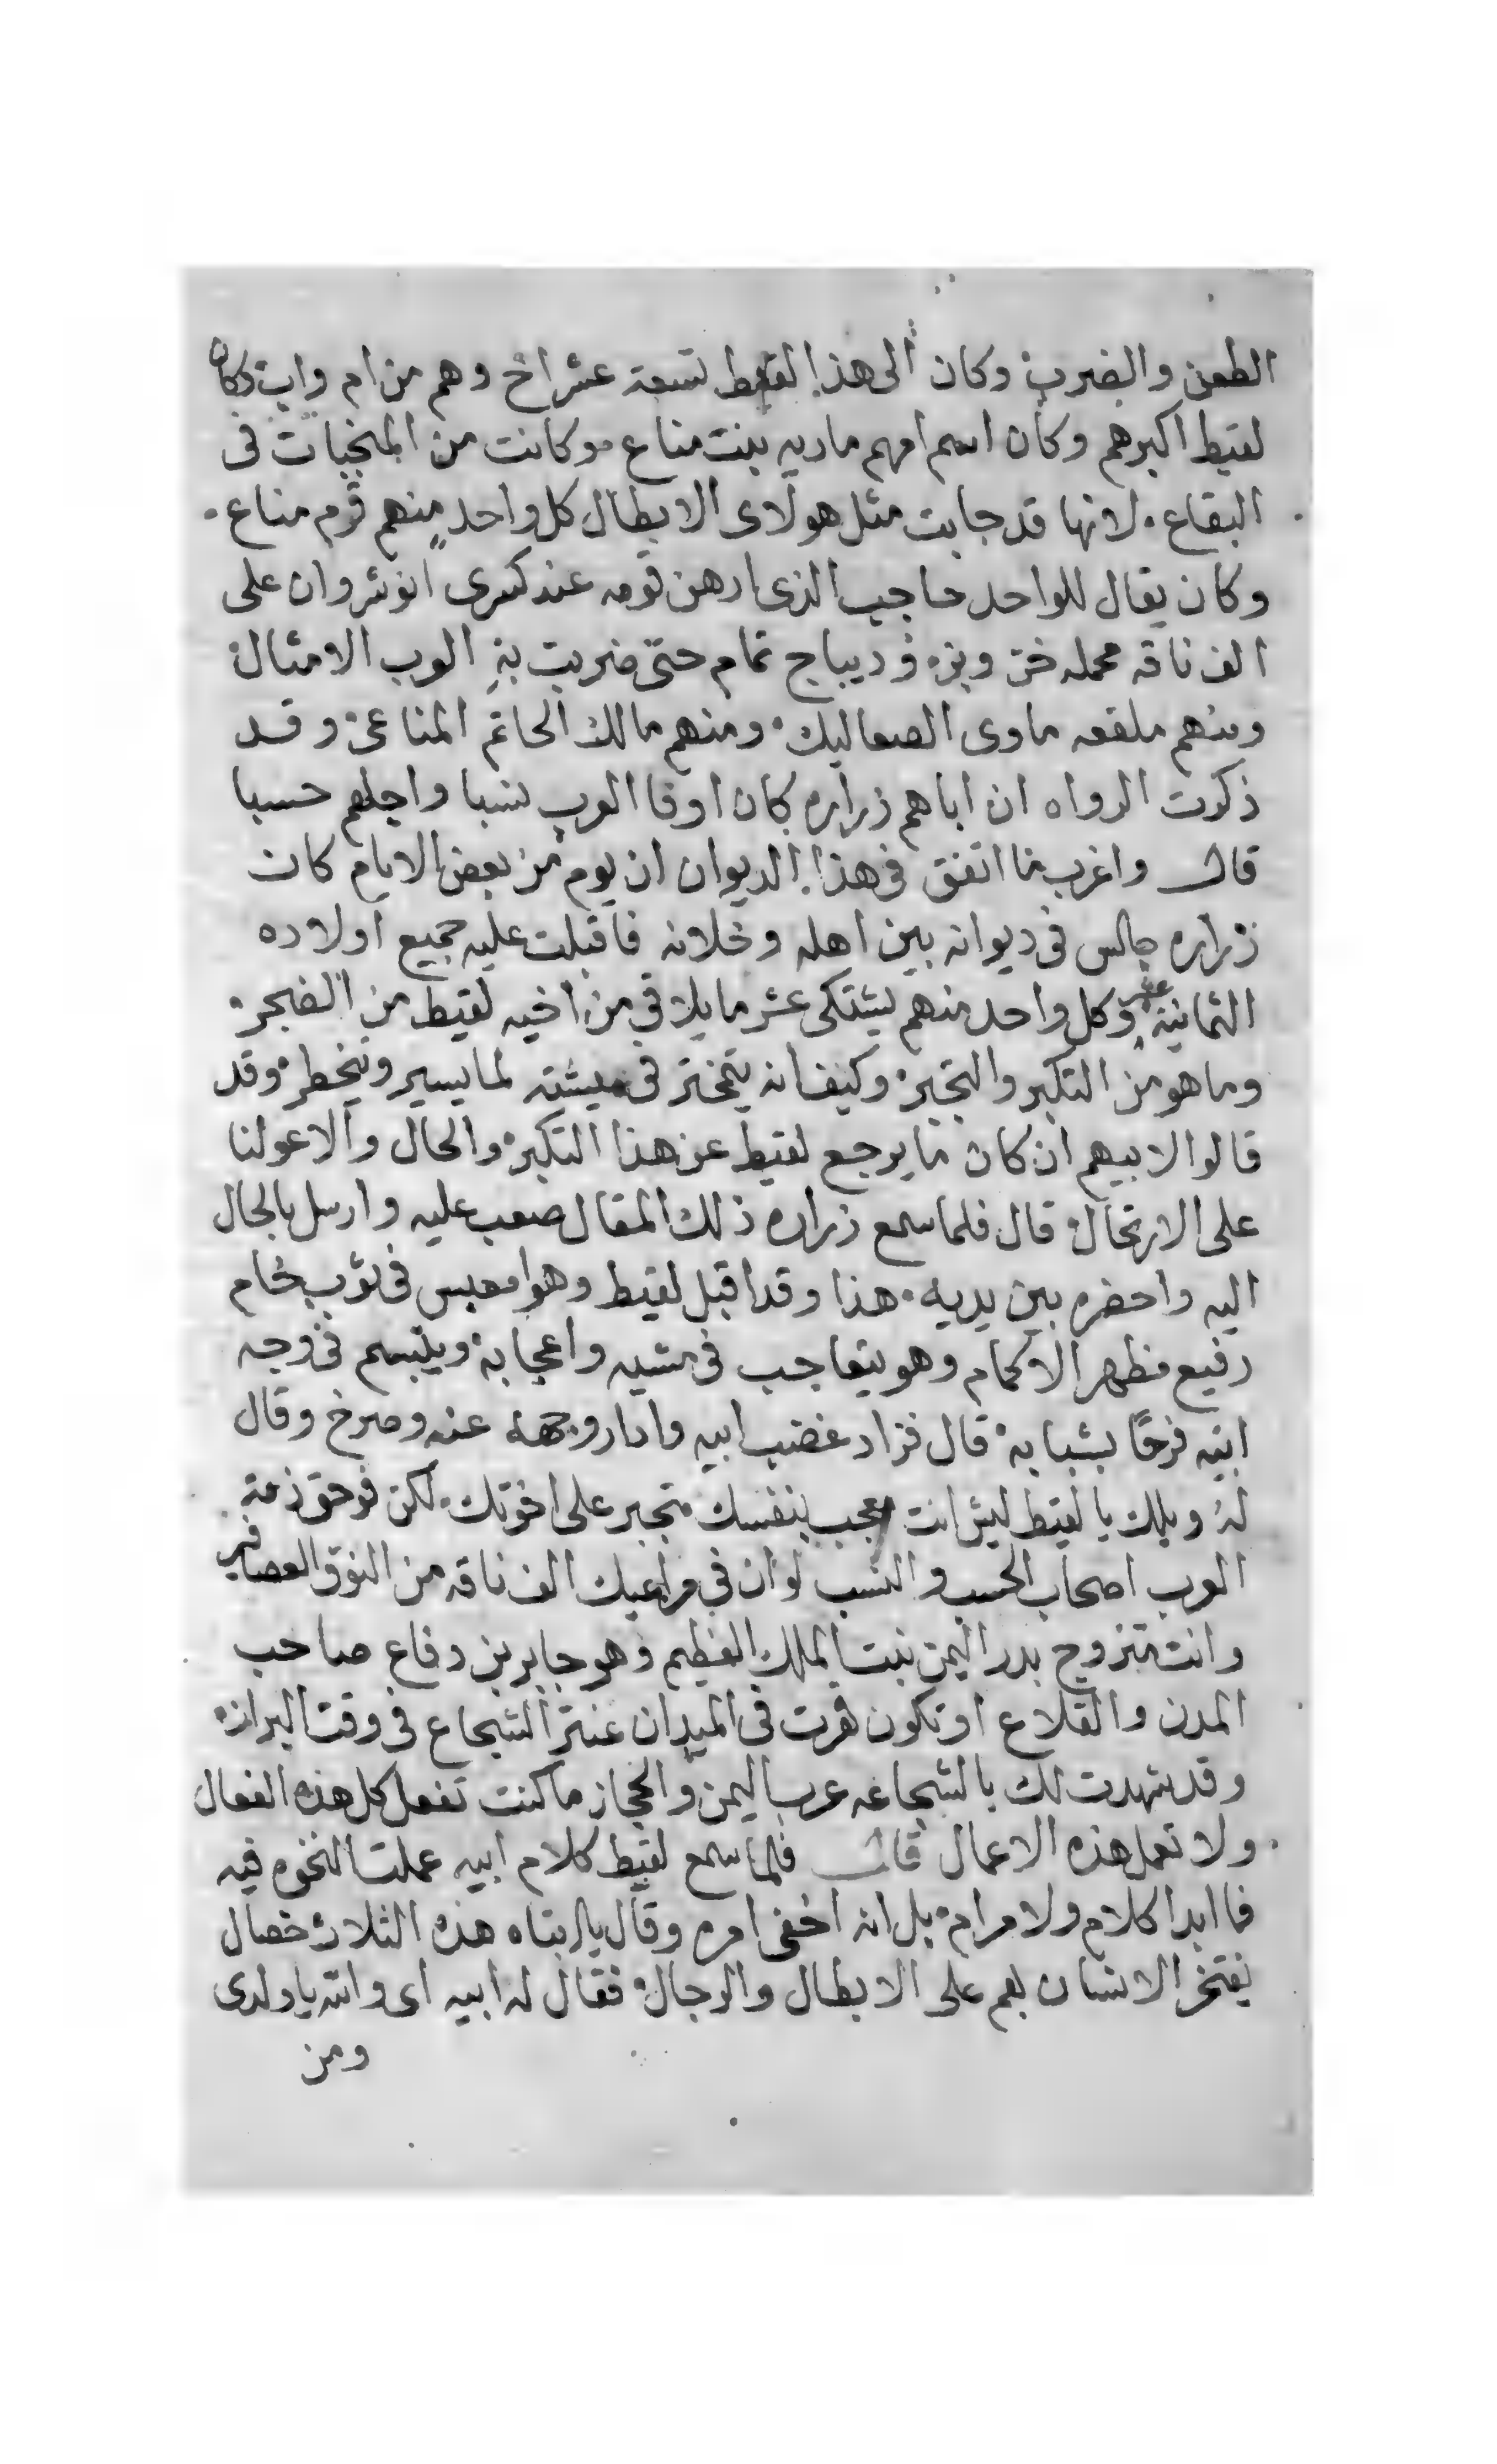 الطعن والضرب وكان الى هذا لقيط تسعة عشر اخ وهم من ام واب وكان
لقيط اكبرهم وكان اسم امهم ماريه بنت مناع وكانت من المنجبات فى
البقاع. لانها قد جابت مثل هولاى الابطال كل واحد منهم قرم مناع.
وكان يقال للواحد حاجب الذى ارهن قوسه عند كسرى انوشروان على
الف ناقه محمله خز وبز وديباج تمام حتى ضربت به العرب الامثال
ومنهم ملقعه ماوى الصعاليك ومنهم مالك الحاتم المناعى وقد
ذكرت الرواه ان اباهم زراره كان اوفا العرب نسبا واجلهم حسبا
قال واغرب ما اتفق فى هذا الديوان ان يوم من بعض الايام كان
زراره جالس فى ديوانه بين اهله وخلانه فاقبلت عليه جميع اولاده
الثمانية عشر وكل واحد منهم يشتكى عشر ما يلاقى من اخيه لقيط من الضجر.
وما هو من التكبر والتجبر وكيف انه يتبختر فى ميشته لما يسير ويخطر وقد
قالوا لابيهم ان كان ما يرجع لقيط عن هذا التكبر والحال والا عولنا
على الارتحال قال فلما سمع زراره ذلك المقال صعب عليه وارسل بالحال
اليه واحضره بين يديه. هذا وقد اقبل لقيط وهوا معبس فى ثوب خام
رفيع مظهر الاكمام وهو يتعاجب فى مشيه واعجابه ويتبسم فى وجه
ابيه فرحًا بشبابه قال فزاد غضب ابيه وادار وجهه عنه وصرخ وقال
له ويلك يا لقيط ليش انت معجب بنفسك متجبر على اخوتك لكن فوحق ذمة
العرب اصحاب الحسب والنسب لو ان فى مراعيك الف ناقه من النوق العصافير
وانت متزوج بدر اليمن بنت الملك العظيم وهو جابر بن دفاع صاحب
المدن والقلاع او تكون قهرت فى الميدان عنتر الشجاع فى وقت البراز
وقد شهدت لك بالشجاعه عرب اليمن والحجاز ما كنت تفعل كل هذه الفعال
ولا تعمل هذه الاعمال قال فلما سمع لقيط كلام ابيه عملت النخوه فيه
فما ابدا كلام ولا مرام بل انه اخفى امره وقال يا ابتاه هذه الثلاث خصال
يفتخر الانسان بهم على الابطال والرجال فقال له ابيه اى والله يا ولدى
ومن